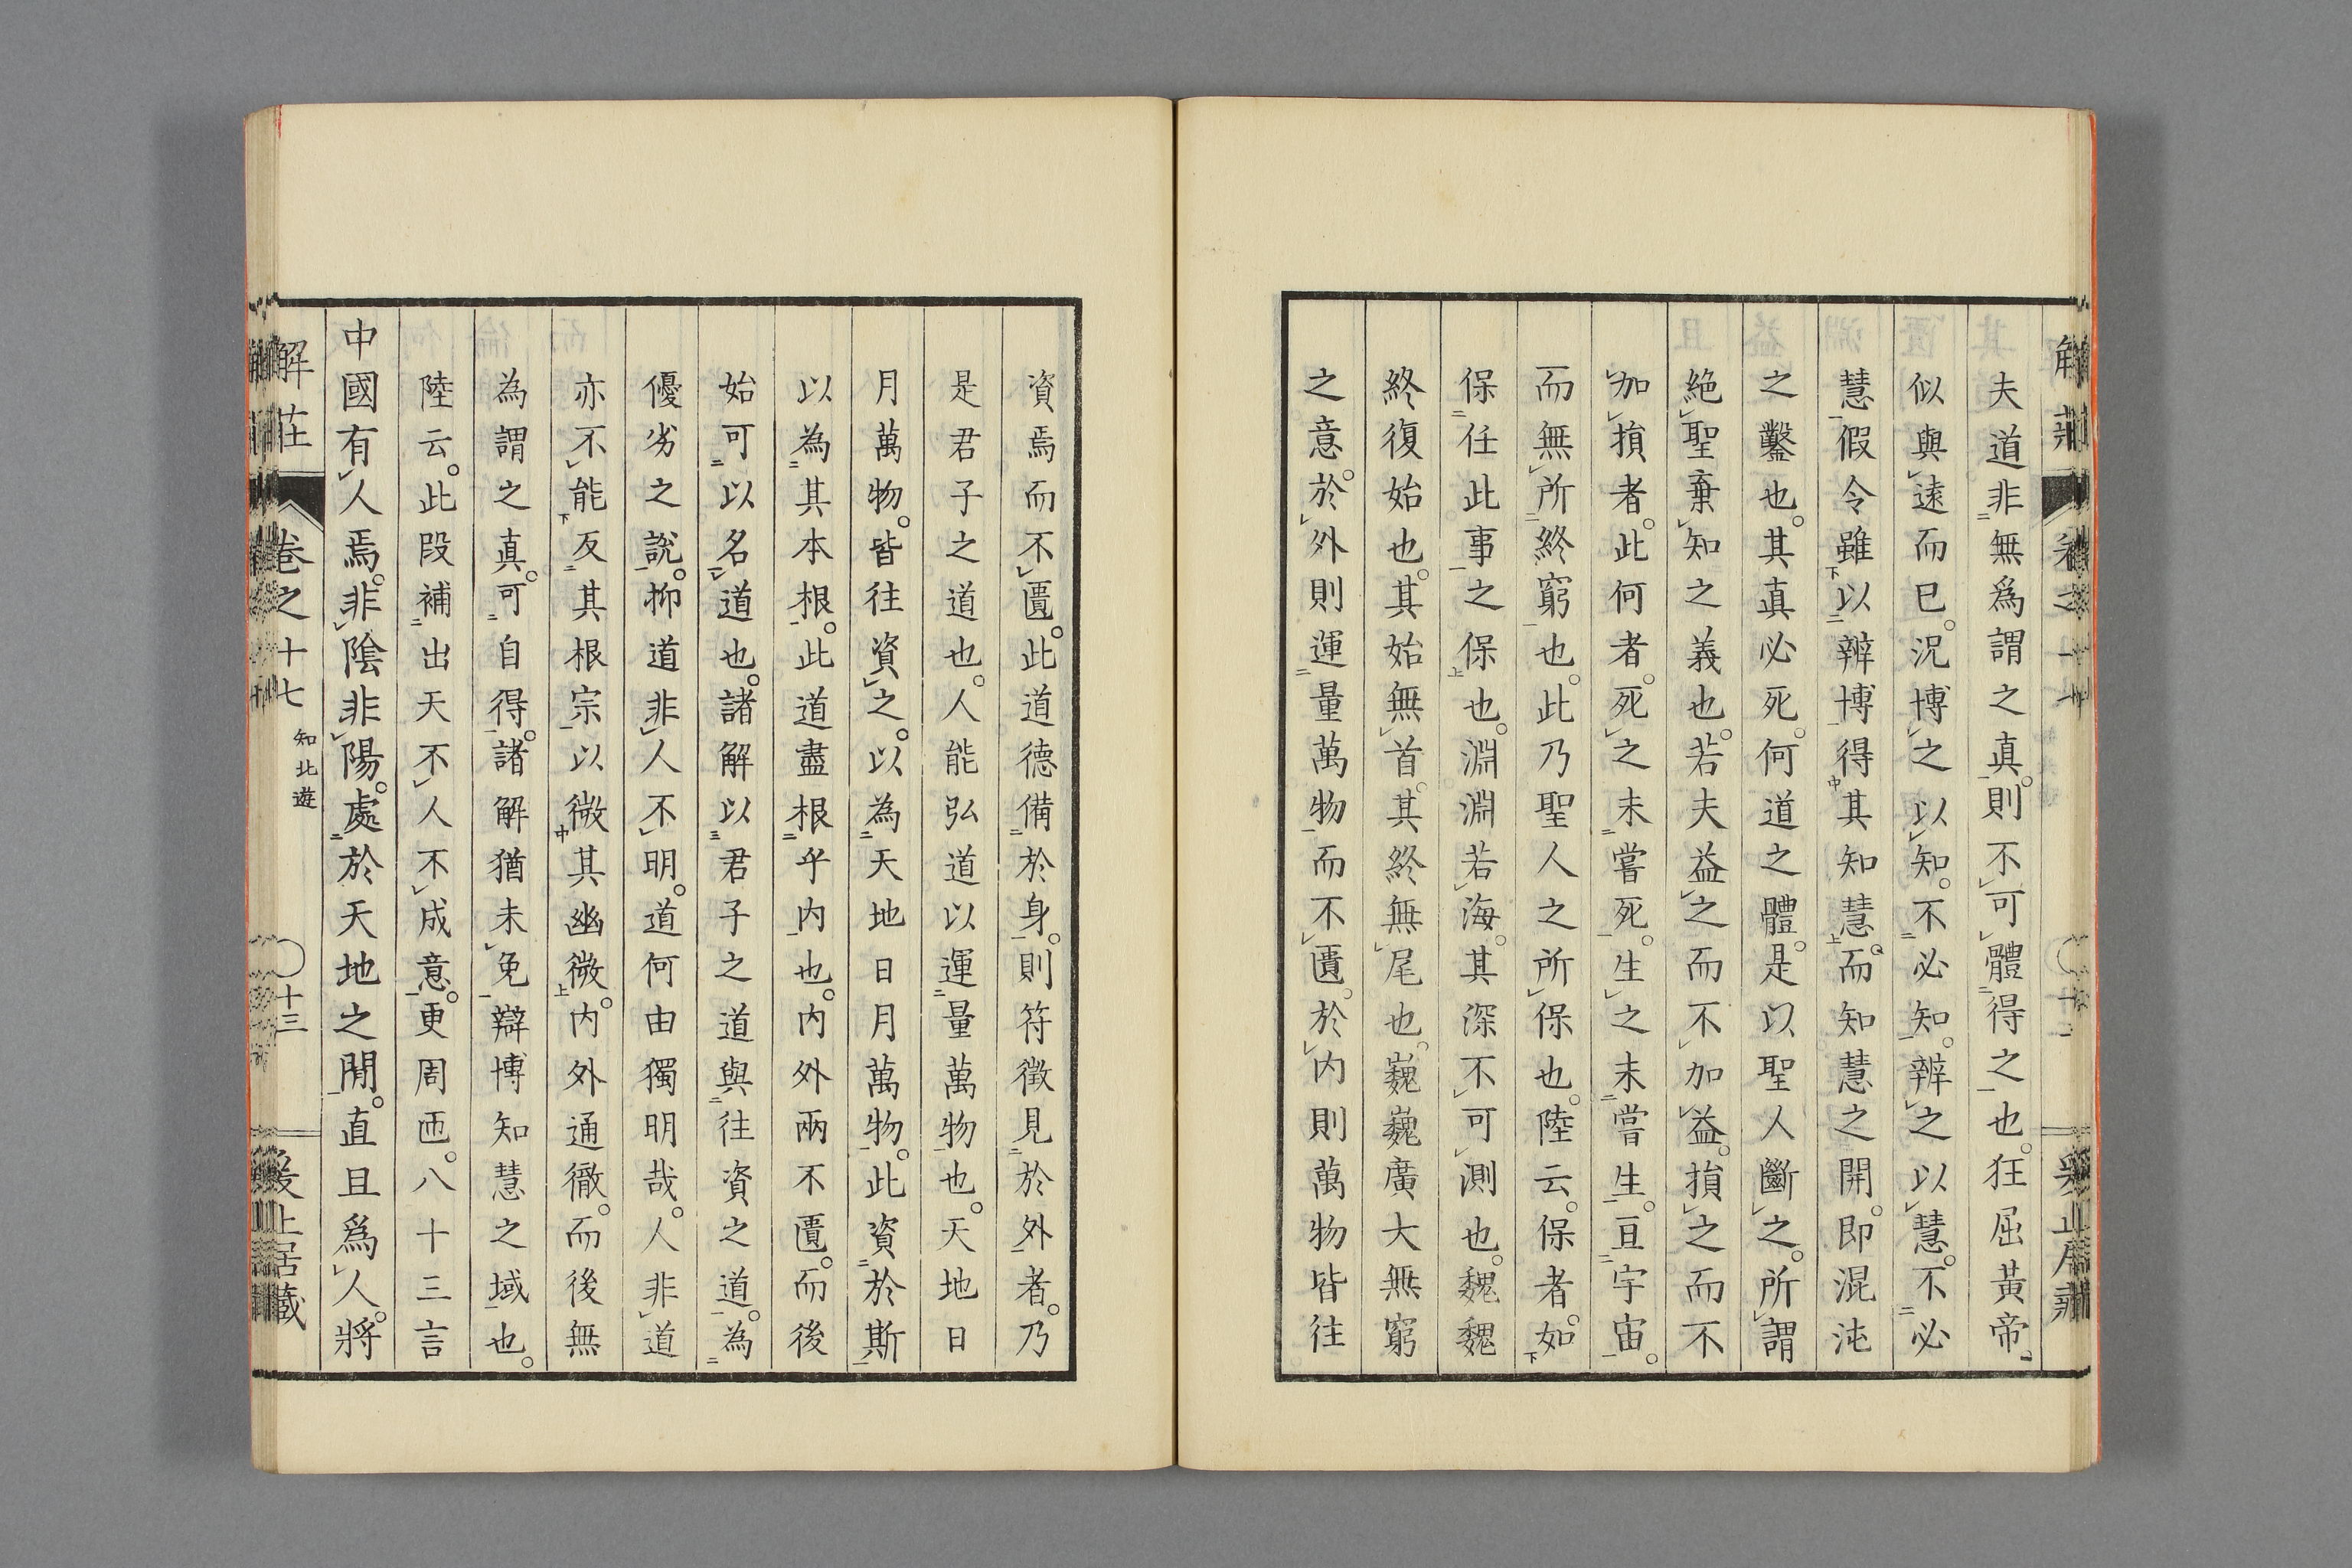 夫道非無爲謂之真。則不可體得之也。狂屈黃帝
似與遠而已。況博之以知。不必知。辨之以慧。不必
慧假令雖以辨博得其知慧。而知慧之開。即混沌
之鑿也。其真必死。何道之體。是以聖人斷之。所謂
絶聖棄知之義也。若夫益之而不加益。損之而不
加損者。此何者。死之未嘗死。生之未嘗生。亘宇宙。
而無所終窮也。此乃聖人之所保也。陸云。保者。如
保任此事之保也。淵淵若海。其深不可測也。魏魏
終復始也。其始無首。其終無尾也。巍巍廣大無窮
之意。於外則運量萬物而不匱。於内則萬物皆往
資焉而不匱。此道德備於身。則符徵見於外者。乃
是君子之道也。人能弘道以運量萬物也。天地日
月萬物。皆往資之。以為天地日月萬物。此資於斯
以為其本根。此道盡根乎内也。内外兩不匱。而後
始可以名道也。諸解以君子之道與往資之道。為
優劣之說。抑道非人不明。道何由獨明哉。人非道
亦不能反其根宗以微其幽微。内外通徹。而後無
為謂之真。可自得。諸解猶未免辯博知慧之域也。
陸云。此段補出天不人不成意。更周匝。八十三言
中國有人焉。非陰非陽。處於天地之閒。直且爲人。將
解莊 卷之十七 知北遊 十三 爰止居藏